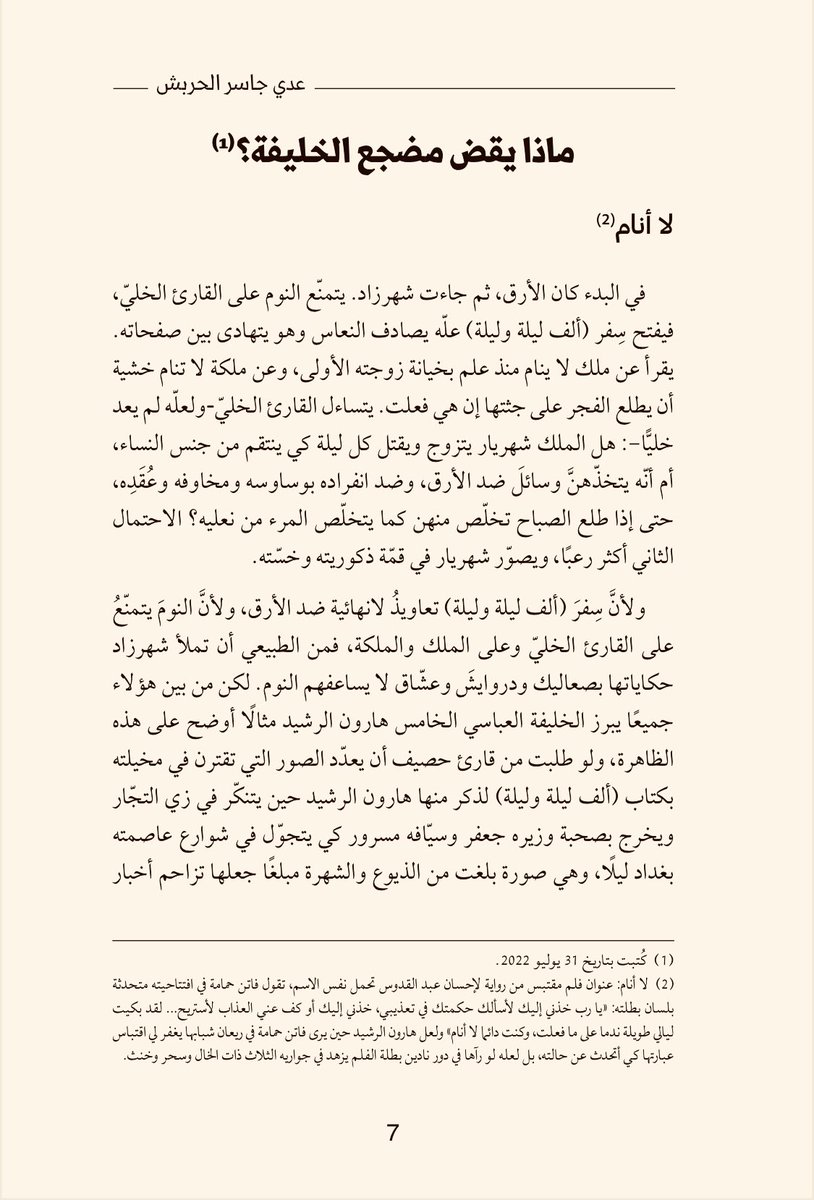 عدي جاسر الحربش
ماذا يقض مضجع الخليفة؟(1)
لا أنام(2)
في البدء كان الأرق، ثم جاءت شهرزاد. يتمنّع النوم على القارئ الخليّ،
فيفتح سِفر (ألف ليلة وليلة) علّه يصادف النعاس وهو يتهادى بين صفحاته.
يقرأ عن ملك لا ينام منذ علم بخيانة زوجته الأولى، وعن ملكة لا تنام خشية
أن يطلع الفجر على جثتها إن هي فعلت. يتساءل القارئ الخليّ-ولعلّه لم يعد
خليًّا-: هل الملك شهريار يتزوج ويقتل كل ليلة كي ينتقم من جنس النساء،
أم أنّه يتخذّهنَّ وسائلَ ضد الأرق، وضد انفراده بوساوسه ومخاوفه وعُقَدِه،
حتى إذا طلع الصباح تخلّص منهن كما يتخلّص المرء من نعليه؟ الاحتمال
الثاني أكثر رعبًا، ويصوّر شهريار في قمّة ذكوريته وخسّته.
ولأنَّ سِفرَ (ألف ليلة وليلة) تعاويذُ لانهائية ضد الأرق، ولأنَّ النومَ يتمنّعُ
على القارئ الخليّ وعلى الملك والملكة، فمن الطبيعي أن تملأ شهرزاد
حكاياتها بصعاليك ودروايشَ وعشّاق لا يساعفهم النوم. لكن من بين هؤلاء
جميعًا يبرز الخليفة العباسي الخامس هارون الرشيد مثالًا أوضح على هذه
الظاهرة، ولو طلبت من قارئ حصيف أن يعدّد الصور التي تقترن في مخيلته
بكتاب (ألف ليلة وليلة) لذكر منها هارون الرشيد حين يتنكّر في زي التجّار
ويخرج بصحبة وزيره جعفر وسيّافه مسرور كي يتجوّل في شوارع عاصمته
بغداد ليلًا، وهي صورة بلغت من الذيوع والشهرة مبلغًا جعلها تزاحم أخبار
(1) كُتبت بتاريخ 31 يوليو 2022.
(2) لا أنام: عنوان فلم مقتبس من رواية لإحسان عبد القدوس تحمل نفس الاسم، تقول فاتن حمامة في افتتاحيته متحدثة
بلسان بطلته: «يا رب خذني إليك لأسألك حكمتك في تعذيبي، خذني إليك أو كف عني العذاب لأستريح... لقد بكيت
ليالي طويلة ندما على ما فعلت، وكنت دائما لا أنام» ولعل هارون الرشيد حين يرى فاتن حمامة في ريعان شبابها يغفر لي اقتباس
عبارتها كي أتحدث عن حالته، بل لعله لو رآها في دور نادين بطلة الفلم يزهد في جواريه الثلاث ذات الخال وسحر وخنث.
7